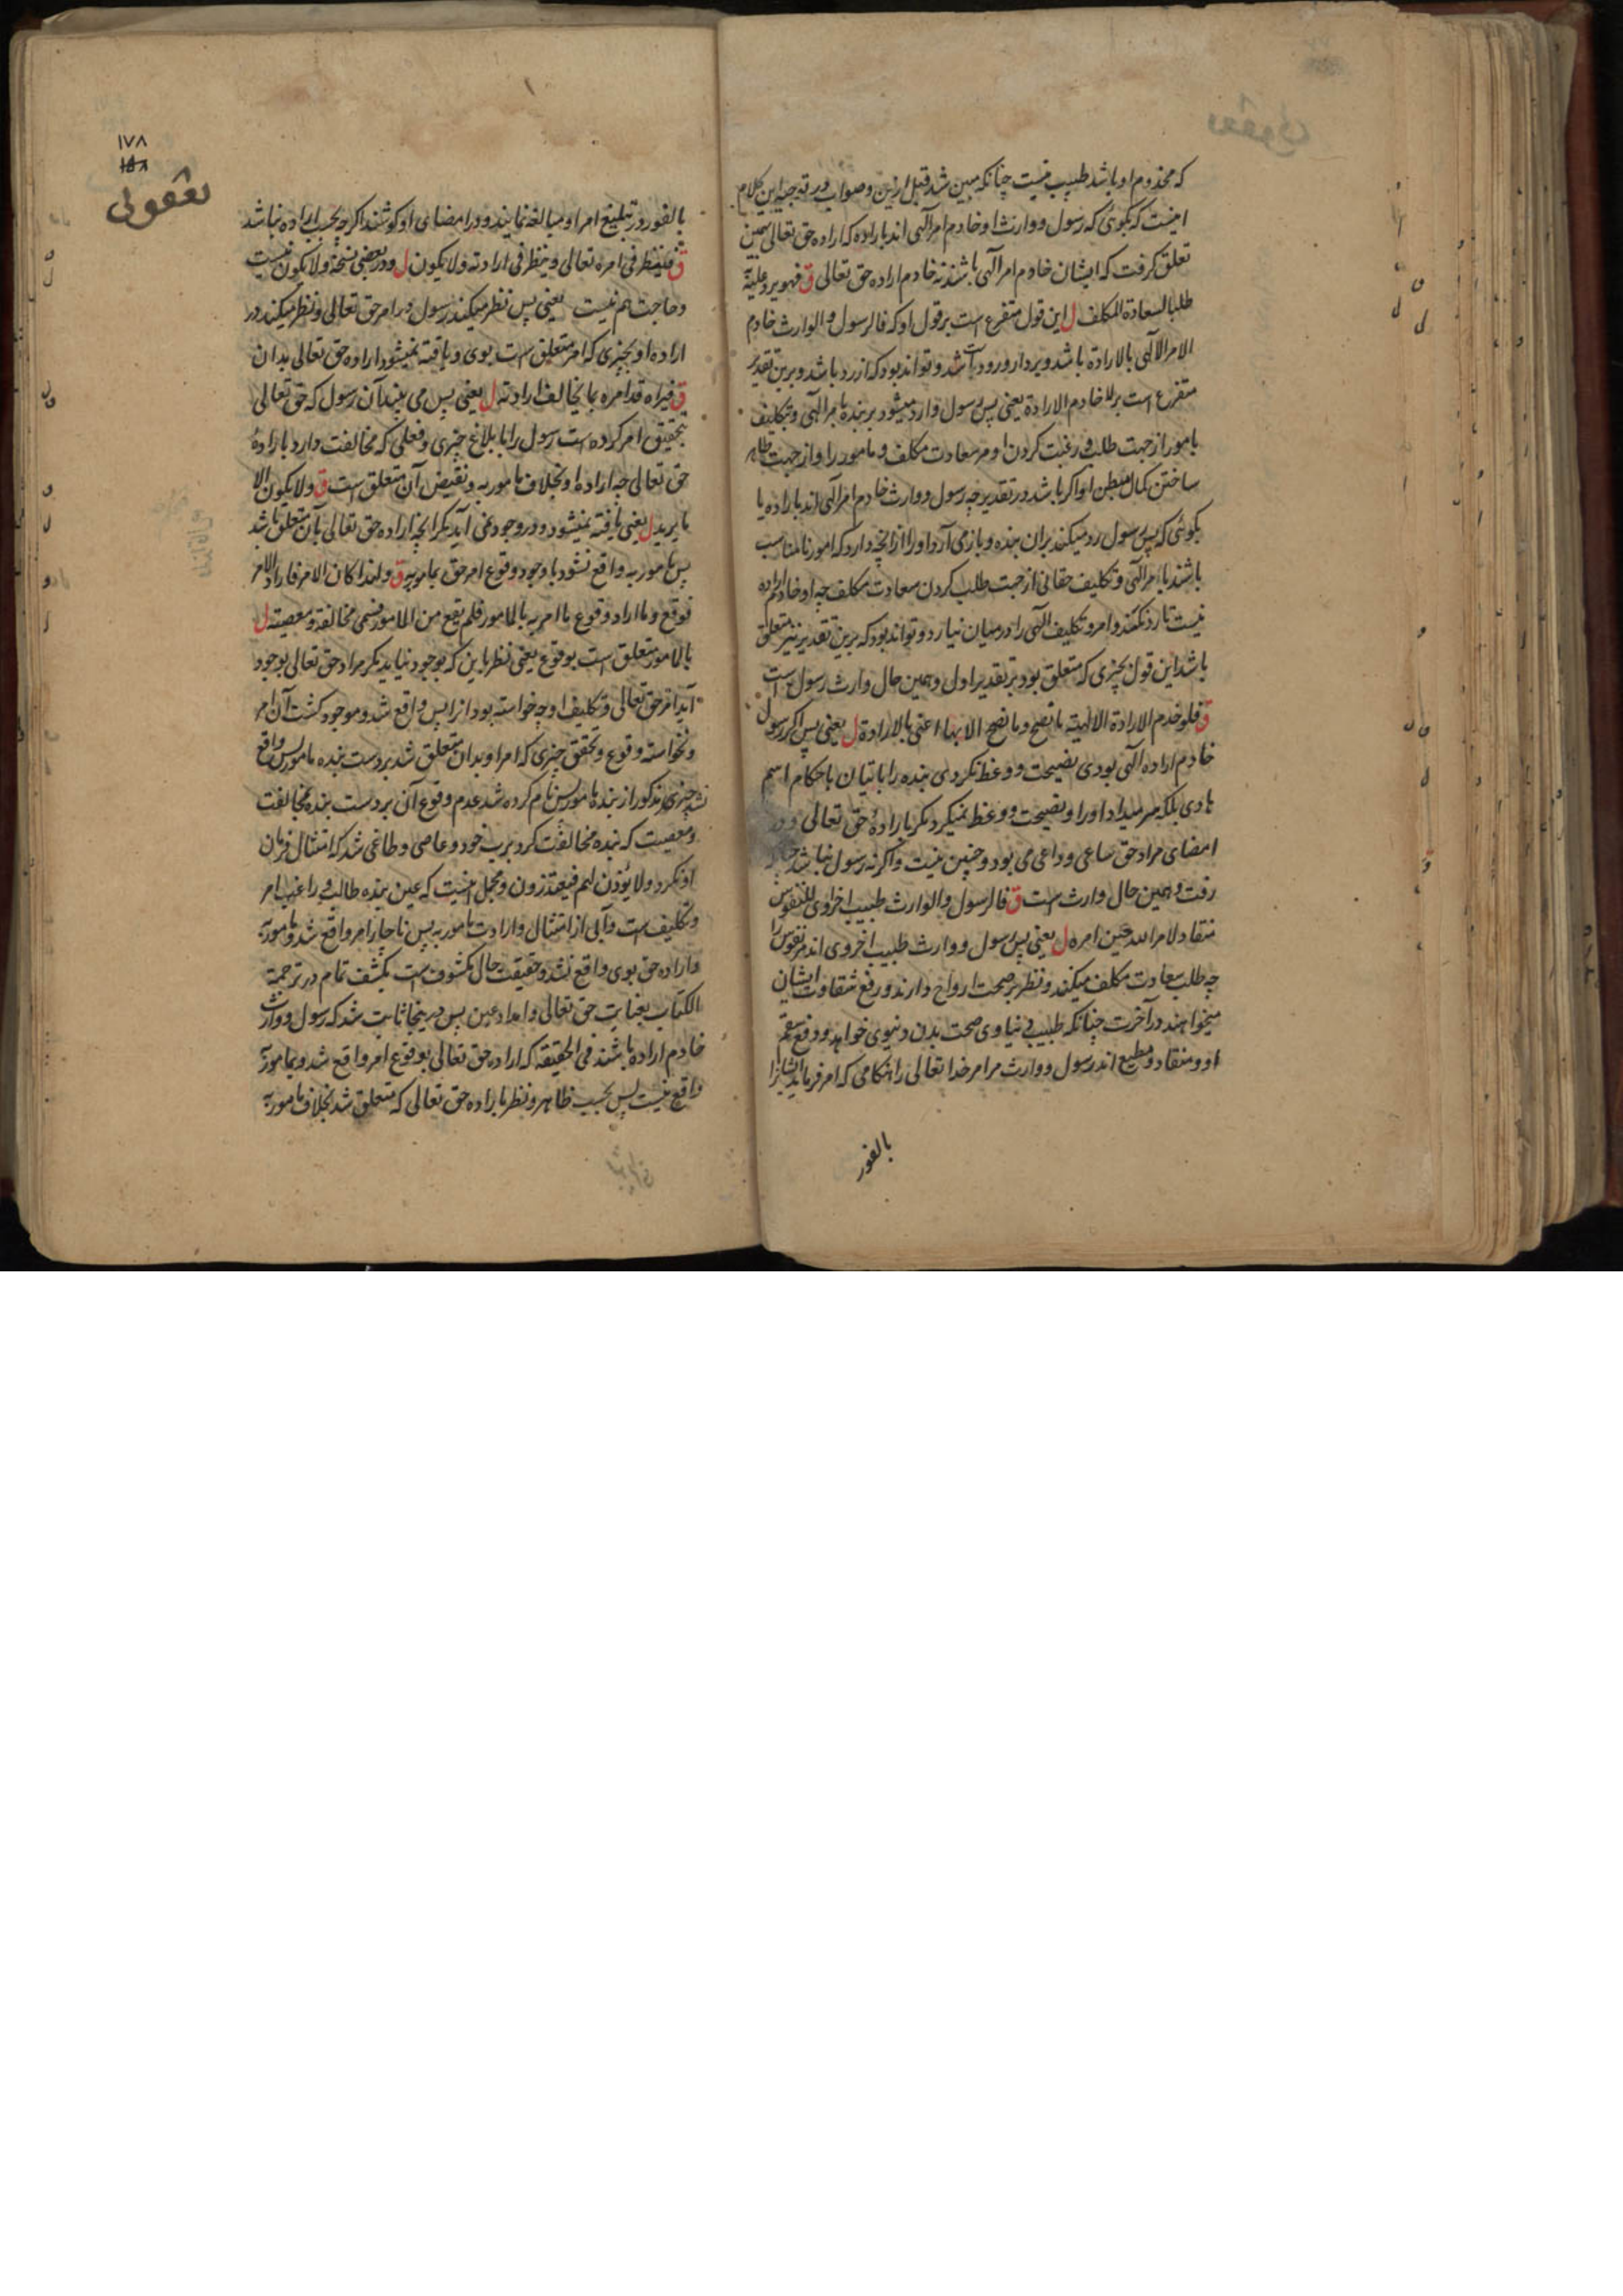 که مخدوم او باشد طبیب نیست چنانکه مبین شد قبل ازین و صواب در توجیه این کلام
اینست که بگوئی که رسول و وارث او خادم امر آلهی اند باراده که اراده حق تعالی بهمین
تعلق گرفت که ایشان خادم امر آلهی باشند نه خادم اراده حق تعالی ق فهو یرد علیه
طلبا لسعادة المکلف ل این قول متفرع است بر قول او که فالرسول و الوارث خادم
الامر الآلهی بالارادة باشد و یرد از ورود باشد و تواند بود که از رد باشد و برین تقدیر
متفرع است بر لا خادم الارادة یعنی پس رسول وارد میشود بر بنده بامر آلهی و تکلیف
مامور از جهت طلب و رغبت کردن او مر سعادت مکلف و مامور را و از جهت ظاهر
ساختن کمال مبطن او اگر باشد در تقدیر چه رسول و وارث خادم امر آلهی اند باراده یا
بگوئی که پس رسول رد میکند بران بنده و باز می آرد او را از انچه دارد که امور نامناسب
باشند بامر آلهی و تکلیف حقانی از جهت طلب کردن سعادت مکلف چه او خادم اراده
نیست تا رد نکند و امر و تکلیف آلهی را در میان نیارد و تواند بود که برین تقدیر نیز متعلق
باشد این قول بچیزی که متعلق بود بر تقدیر اول و همین حال وارث رسول است
ق فلو خدم الارادة الالهیة ما نصح و ما نصح الا بها اعنی بالارادة ل یعنی پس اگر رسول
خادم اراده آلهی بودی نصیحت و وعظ نکردی بنده را باتیان باحکام اسم
هادی بلکه سر میداد او را و نصیحت و وعظ نمیکرد مگر بارادهٔ حق تعالی و در
امضای مراد حق ساعی و داعی می بود و چنین نیست و اگر نه رسول نباشد چنانکه
رفت و همین حال وارث است ق فالرسول و الوارث طبیب اخراوی للنفوس
منقاد لامر الله حین امره ل یعنی پس رسول و وارث طبیب اخروی اند مر نفوس را
چه طلب سعادت مکلف میکند و نظر بر صحت ارواح دارند و رفع شقاوت ایشان
میخواهند در آخرت چنانکه طبیب دنیاوی صحت بدن دنیوی خواهد و دفع سقم
او و منقاد و مطیع اند رسول و وارث مر امر خدا تعالی را هنگامی که امر فرماید ایشانرا
بالفور
۱۷۸
بالفور در تبلیغ امر او مبالغه نمایند و در امضای او کوشند اگرچه بحسب اراده نباشد
ق فینظر فی امره تعالی و ینظر فی ارادته و لا یکون ل و در بعضی نسخة و لا یکون نیست
و حاجت هم نیست یعنی پس نظر میکند رسول در امر حق تعالی و نظر میکند در
اراده او بچیزی که امر متعلق است بوی و یافته نمیشود اراده حق تعالی بدان
ق فیراه قد امره بما یخالف ارادته ل یعنی پس می بیند آن رسول که حق تعالی
بتحقیق امر کرده است رسول را بابلاغ چیزی و فعلی که مخالفت دارد بارادهٔ
حق تعالی چه اراده او بخلاف مامور به و نقیض آن متعلق است ق و لا یکون الا
ما یرید ل یعنی یافته نمیشود و در وجود نمی آید مگر انچه اراده حق تعالی بآن متعلق باشد
پس مامور به واقع نشود با وجود وقوع امر حق بمامور به ق و لهذا کان الامر فاراد الامر
فوقع و ما اراد وقوع ما امر به بالمامور فلم یقع من المامور فسمی مخالفة و معصیة ل
بالمامور متعلق است بوقوع یعنی نظر باین که بوجود نیاید مگر مراد حق تعالی بوجود
آید امر حق تعالی و تکلیف او چه خواسته بود انرا پس واقع شد و موجود گشت آن امر
و نخواسته وقوع و تحقق چیزی که امر او بدان متعلق شد بر دست بنده مامور پس واقع
نشد چیزی مذکور از بنده مامور پس نام کرده شد عدم وقوع آن بر دست بنده بمخالفت
و معصیت که بنده مخالفت کرد برب خود و عاصی و طاغی شد که امتثال فرمان
او نکرد و لا یؤذن لهم فیعتذرون و مجمل اینست که عین بنده طالب و راغب امر
و تکلیف است و آبی از امتثال و ارادت مامور به پس ناچار امر واقع شد و مامور به
و اراده حق بوی واقع نشد و حقیقت حال مکشوف است بکشف تمام در ترجمة
الکتاب بعنایت حق تعالی و امداد عین پس درینجا ثابت شد که رسول و وارث
خادم اراده باشند فی الحقیقه که اراده حق تعالی بوقوع امر واقع شد و بمامور به
واقع نیست پس بحسب ظاهر و نظر باراده حق تعالی که متعلق شد بخلاف مامور به